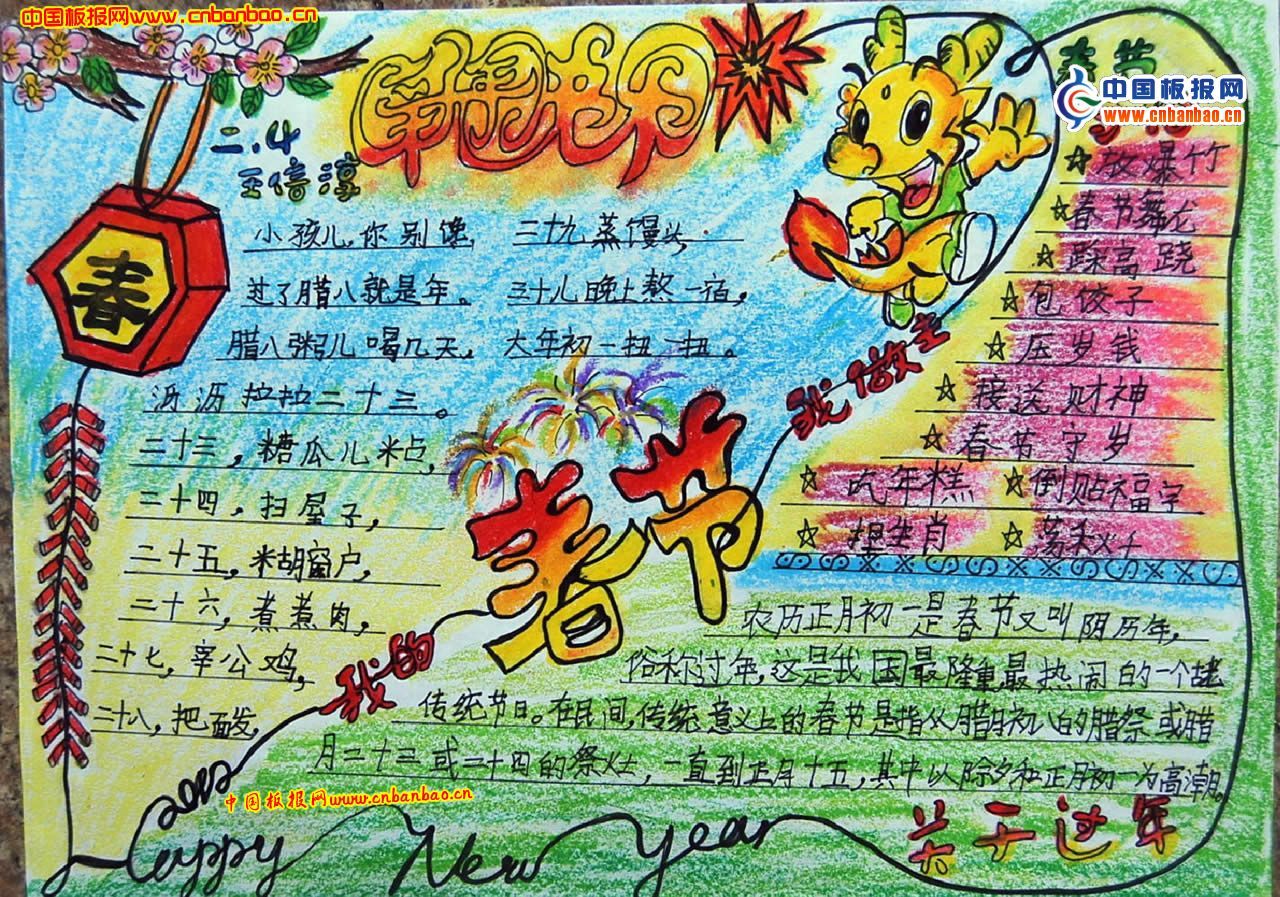 中国板报网www.cnbanbao.cn
春节
中国板报网
www.cnbanbao.cn
二.4
王倍淳
春
小孩儿,你别馋, 三十九蒸馒头,
过了腊八就是年。 三十儿晚上熬一宿,
腊八粥儿喝几天, 大年初一扭一扭。
沥沥拉拉二十三。
二十三,糖瓜儿粘,
二十四,扫屋子,
二十五,糊窗户,
二十六,煮煮肉,
二十七,宰公鸡,
二十八,把面发,
☆放爆竹
☆春节舞龙
☆踩高跷
☆包饺子
☆压岁钱
☆接送财神
☆春节守岁
☆吃年糕 ☆倒贴福字
☆捏生肖 ☆荡秋千
我的
春节
我做主
农历正月初一是春节又叫阴历年,
俗称过年,这是我国最隆重,最热闹的一个古老
传统节日。在民间,传统意义上的春节是指从腊月初八的腊祭或腊
月二十三或二十四的祭灶,一直到正月十五,其中以除夕和正月初一为高潮。
关于过年
2012
中国板报网www.cnbanbao.cn
Happy New year